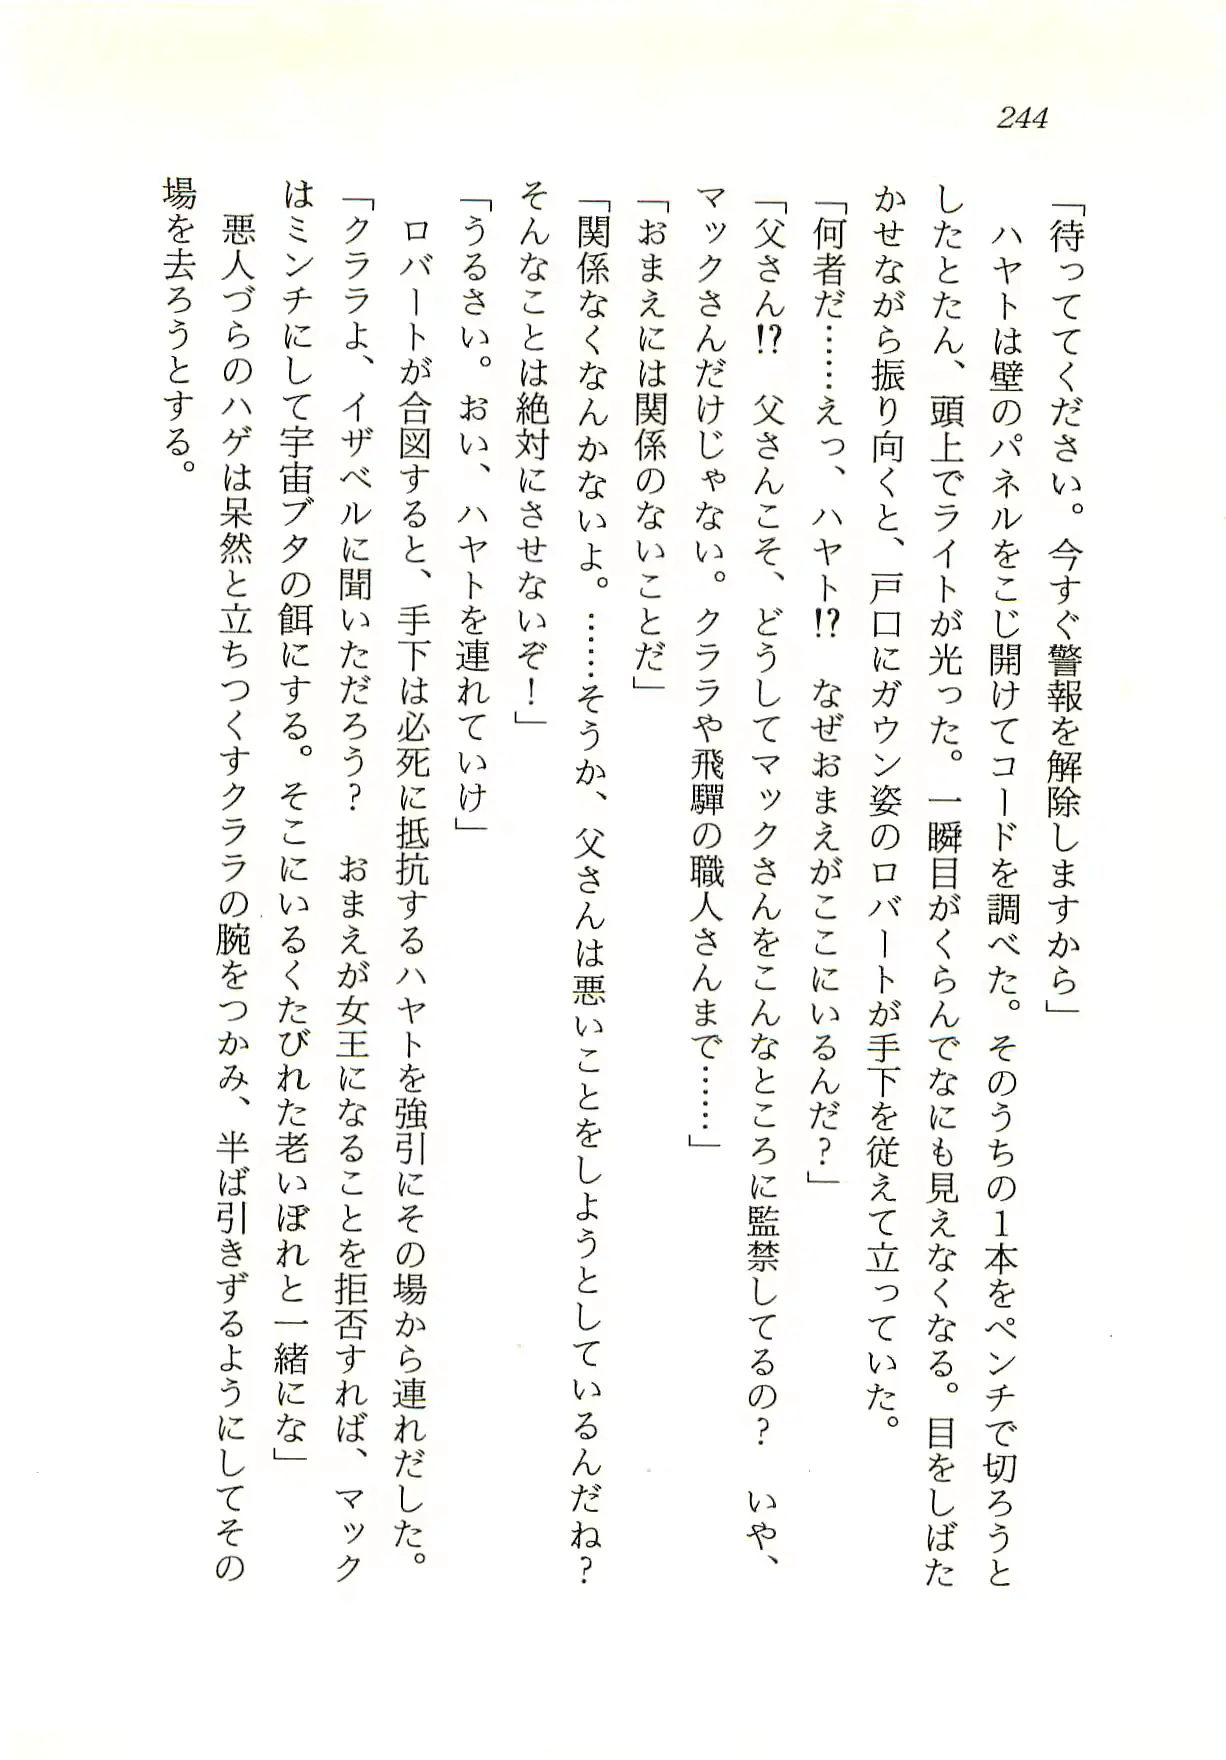 244
「待っててください。今すぐ警報を解除しますから」
　ハヤトは壁のパネルをこじ開けてコードを調べた。そのうちの1本をペンチで切ろうと
したとたん、頭上でライトが光った。一瞬目がくらんでなにも見えなくなる。目をしばた
かせながら振り向くと、戸口にガウン姿のロバートが手下を従えて立っていた。
「何者だ……えっ、ハヤト!?　なぜおまえがここにいるんだ？」
「父さん!?　父さんこそ、どうしてマックさんをこんなところに監禁してるの？　いや、
マックさんだけじゃない。クララや飛驒の職人さんまで……」
「おまえには関係のないことだ」
「関係なくなんかないよ。……そうか、父さんは悪いことをしようとしているんだね？
そんなことは絶対にさせないぞ！」
「うるさい。おい、ハヤトを連れていけ」
　ロバートが合図すると、手下は必死に抵抗するハヤトを強引にその場から連れだした。
「クララよ、イザベルに聞いただろう？　おまえが女王になることを拒否すれば、マック
はミンチにして宇宙ブタの餌にする。そこにいるくたびれた老いぼれと一緒にな」
　悪人づらのハゲは呆然と立ちつくすクララの腕をつかみ、半ば引きずるようにしてその
場を去ろうとする。